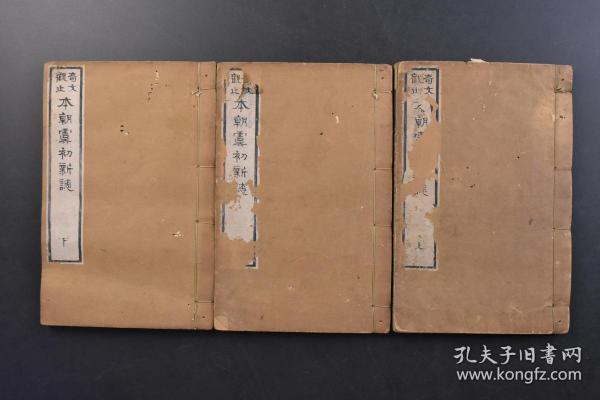 奇文
觀止
朝
上
文
觀止
本朝虞初新誌
奇文
觀止
本朝虞初新誌
下
孔夫子旧书网
www.kongfz.com